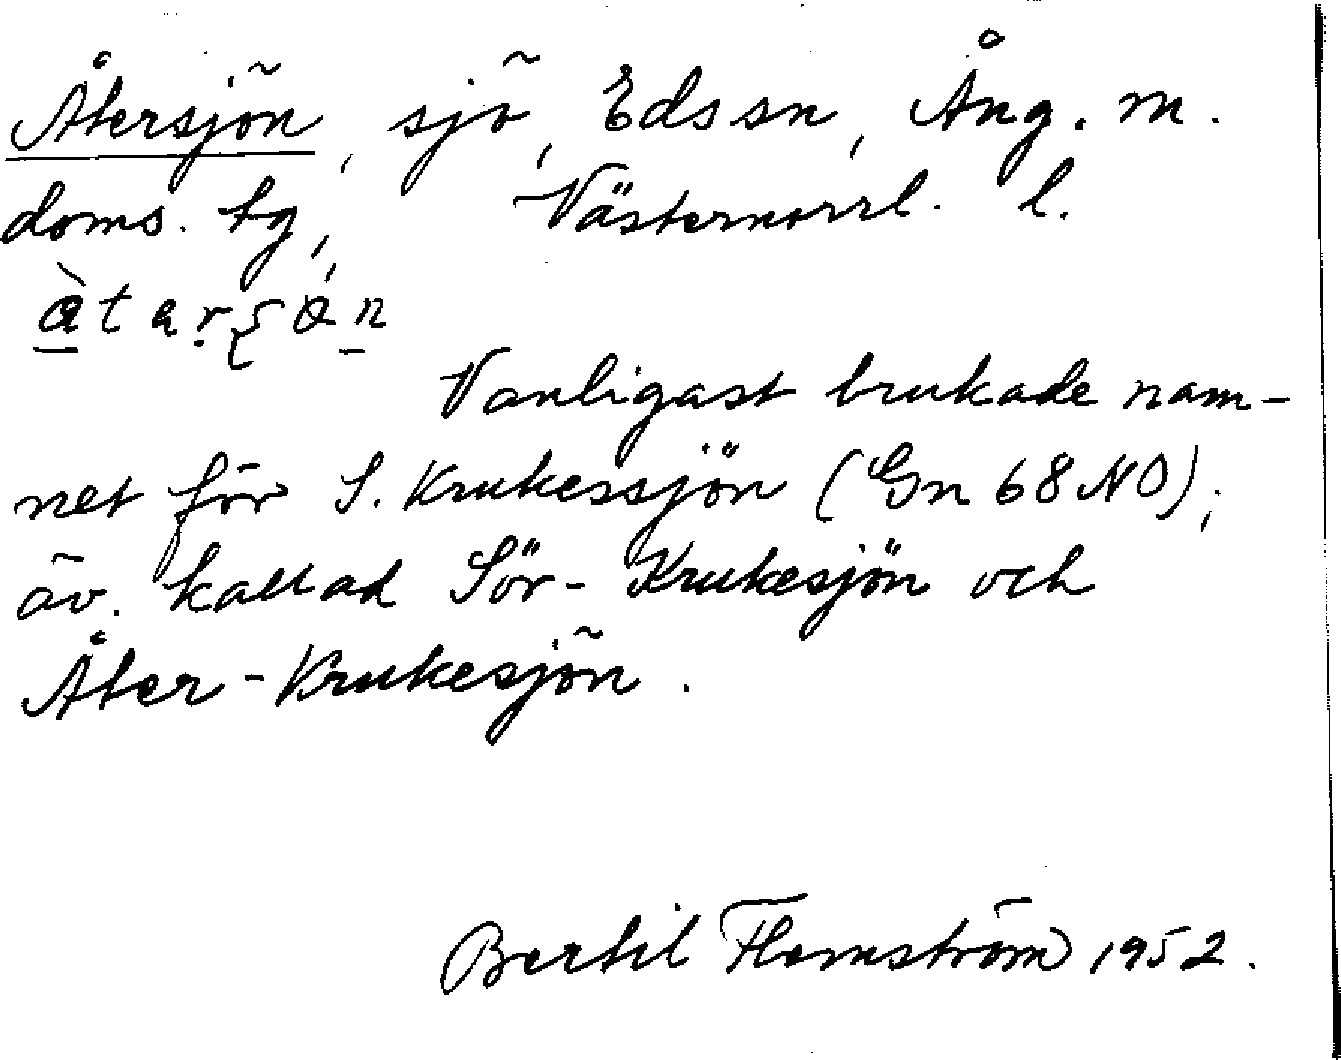 Återsjön, sjö, Edssn, Ång. m.
doms. hg, Västernorrl. l.
Vanligast brukade nam-
net för S. Krukessjön (Gn 68 NO);
äv. kallad Sör-Krukesjön och
Åter-Krukesjön.
Bertil Flemström 1952.